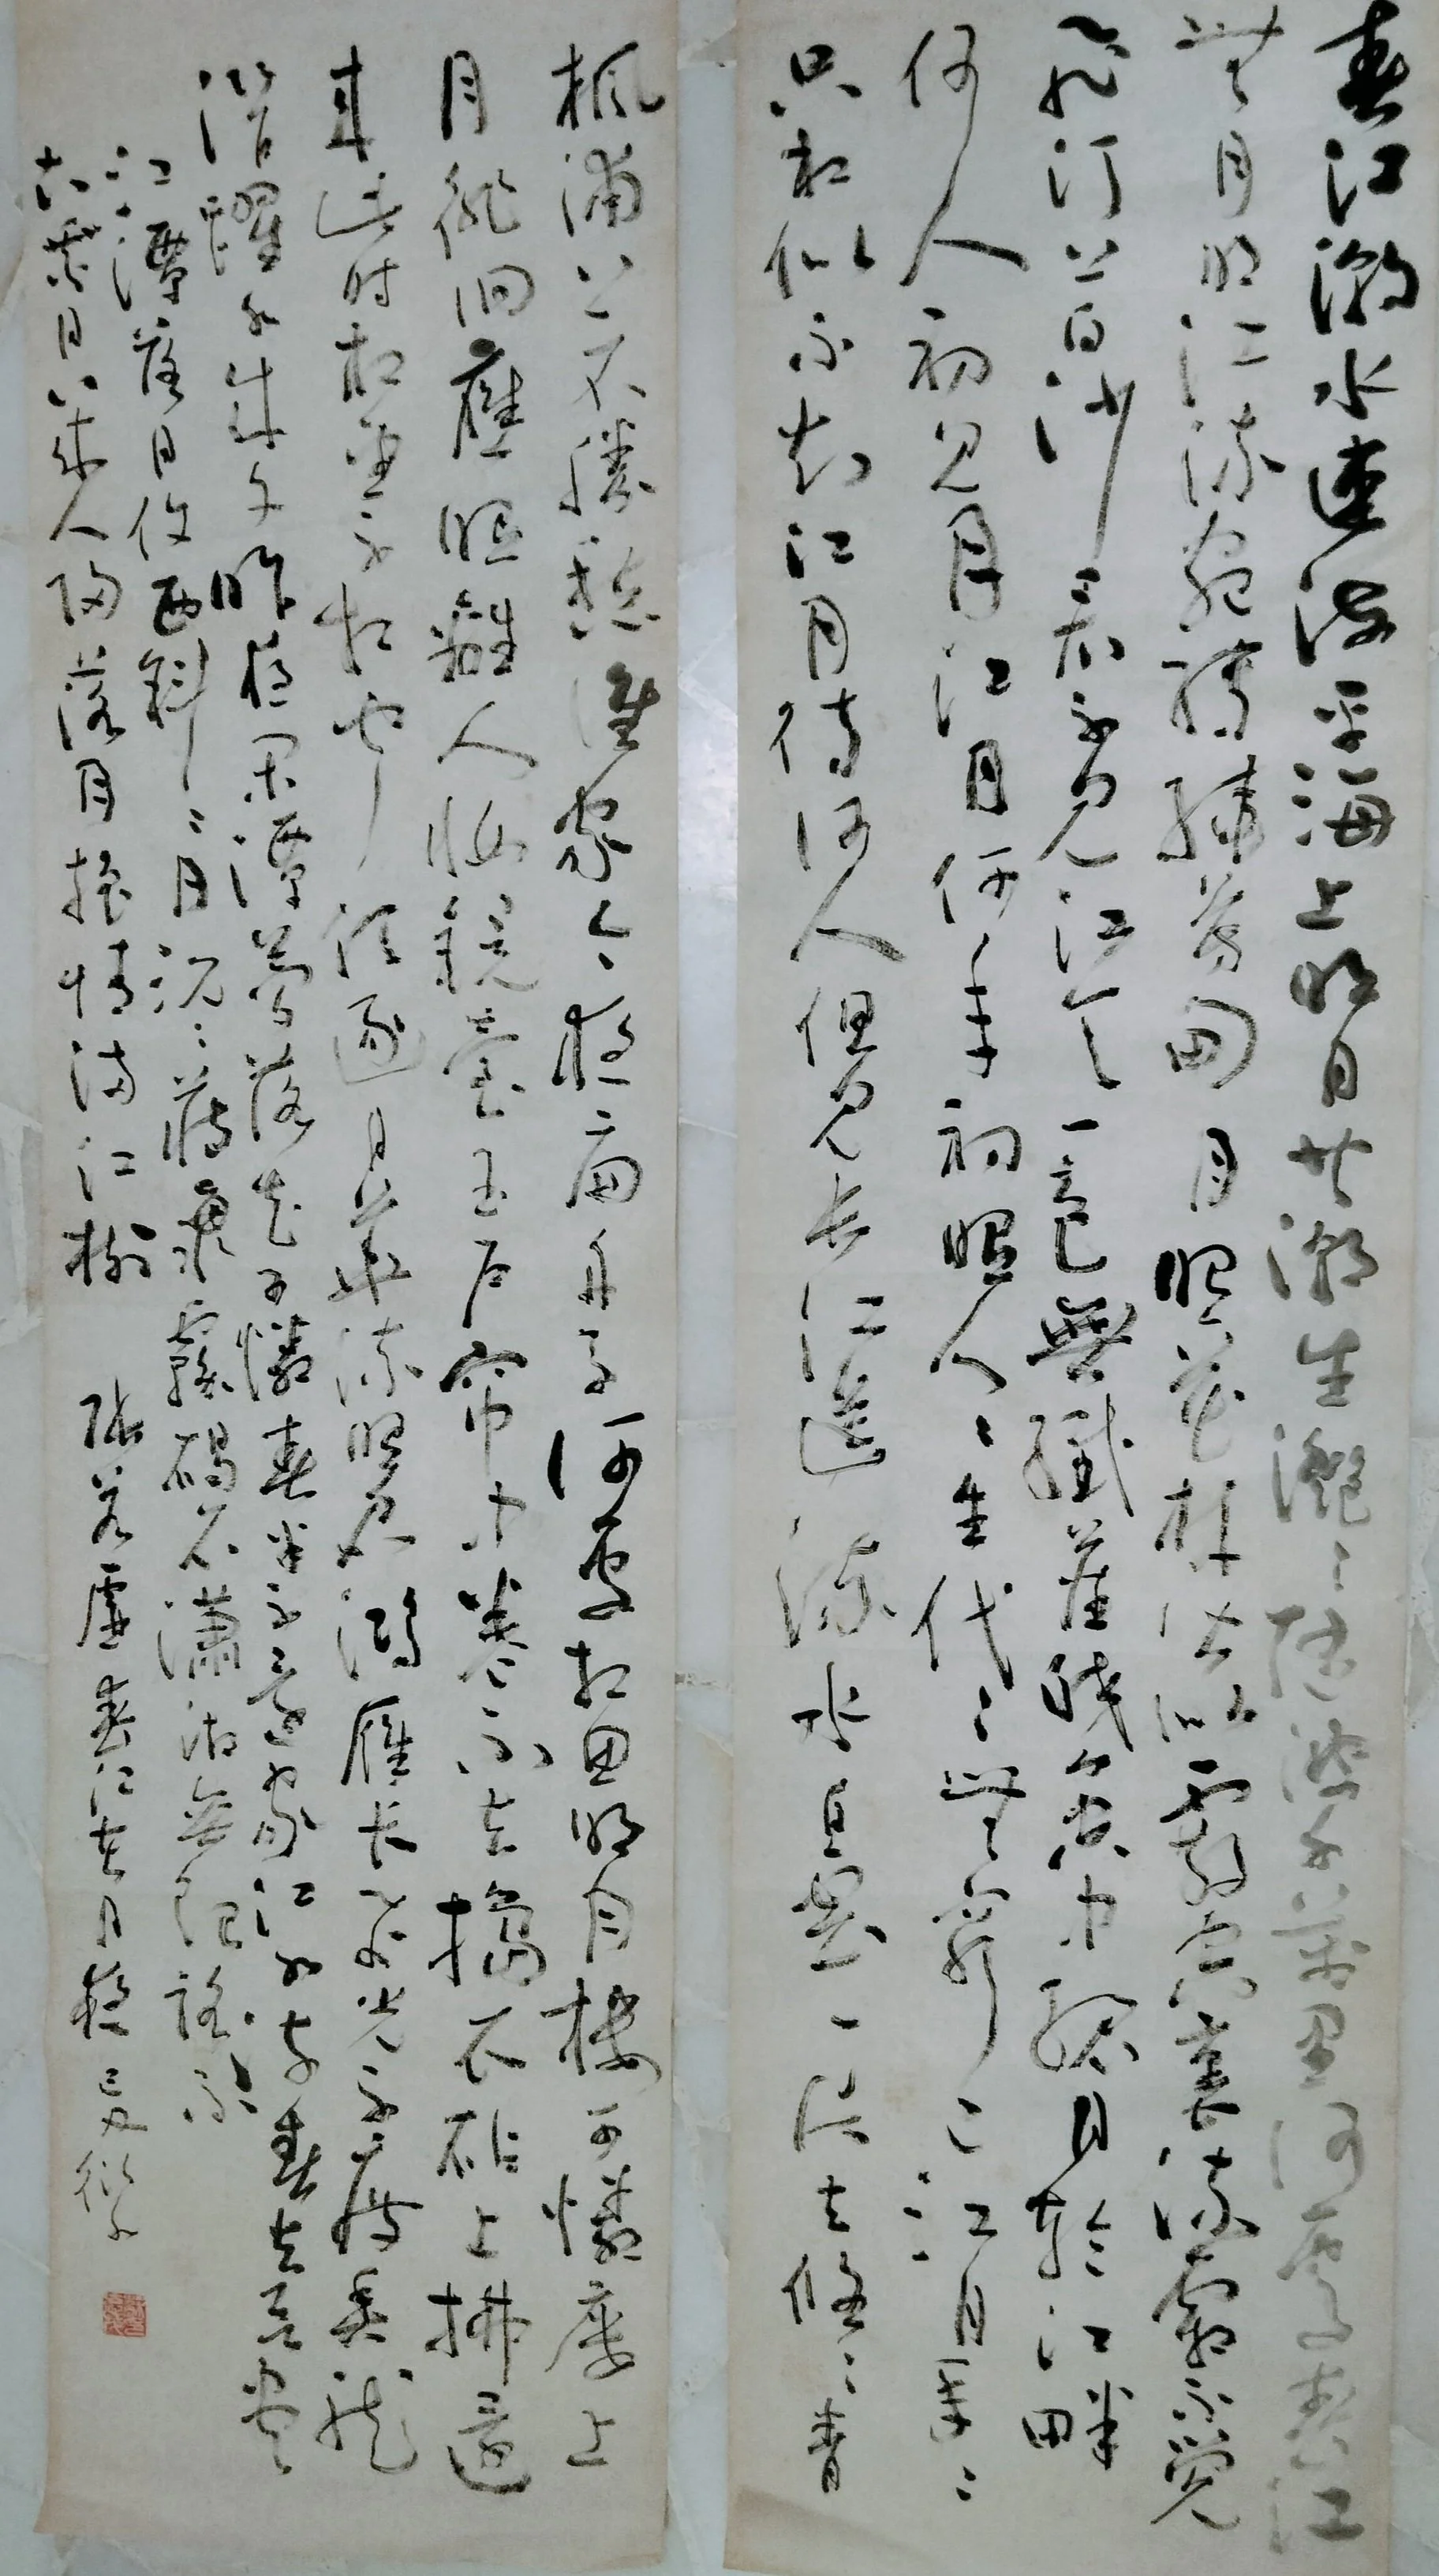 春江潮水連海平海上明月共潮生灩〻隨波千萬里何處春江
無月明江流宛轉繞芳甸月照花林皆似霰空裏流霜不覺
飛汀上白沙看不見江天一色無纖塵皎〻空中孤月輪江畔
何人初見月江月何年初照人〻生代〻無窮已江月年〻
只相似不知江月待何人但見長江送流水白雲一片去悠〻青
楓浦上不勝愁誰家今夜扁舟子何處相思明月樓可憐樓上
月徘徊應照離人妝鏡臺玉戶簾中卷不去擣衣砧上拂還
來此時相望不相聞願逐月華流照君鴻雁長飛光不度魚龍
潛躍水成文昨夜閑潭夢落花可憐春半不還家江水流春去欲盡
江潭落月復西斜〻月沉〻藏海霧碣石瀟湘無限路不
知乘月幾人歸落月搖情滿江樹 張若虛春江花月夜